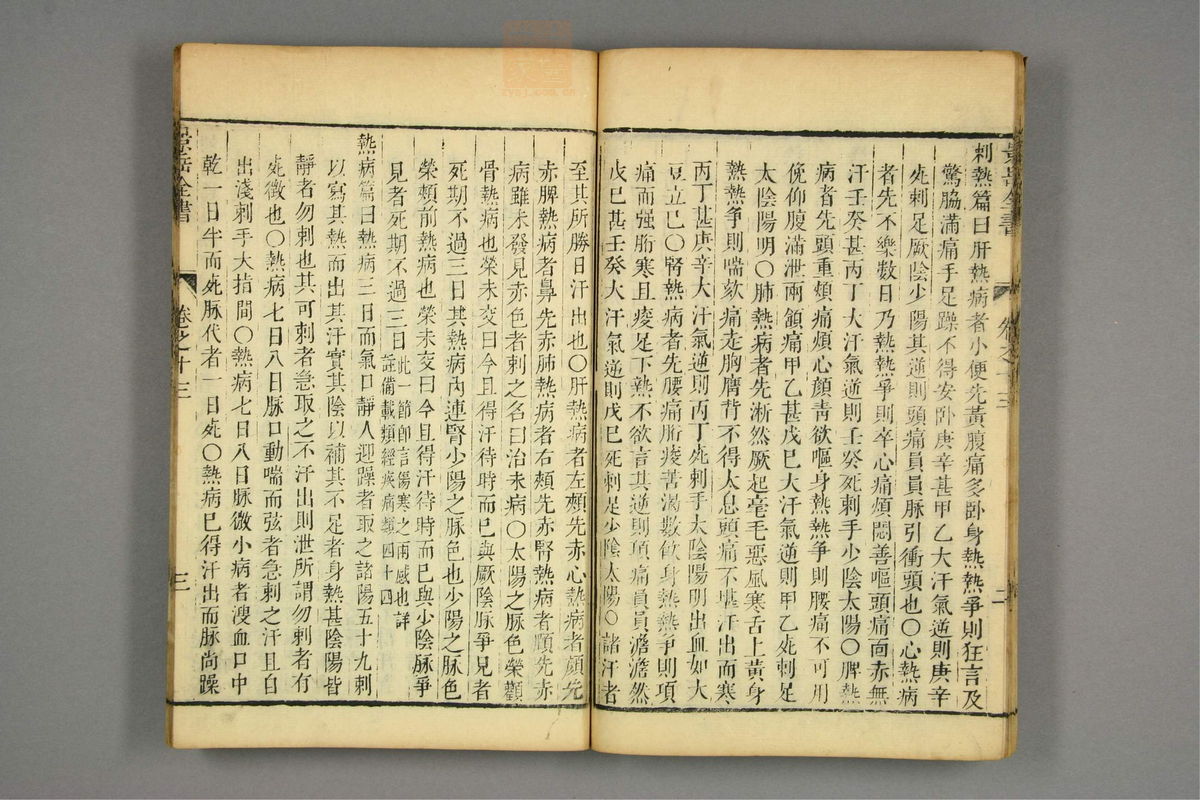 刺熱篇曰肝熱病者小便先黃腹痛多卧身熱熱爭則狂言及
驚脇滿痛手足躁不得安卧庚辛甚甲乙大汗氣逆則庚辛
死刺足厥陰少陽其逆則頭痛員員脉引衝頭也〇心熱病
者先不樂數日乃熱熱爭則卒心痛煩悶善嘔頭痛面赤無
汗壬癸甚丙丁大汗氣逆則壬癸死刺手少陰太陽〇脾熱
病者先頭重頰痛煩心顏靑欲嘔身熱熱爭則腰痛不可用
俛仰腹滿泄兩頷痛甲乙甚戊巳大汗氣逆則甲乙死刺足
太陰陽明〇肺熱病者先淅然厥起毫毛惡風寒舌上黃身
熱熱爭則喘欬痛走胸膺背不得太息頭痛不堪汗出而寒
丙丁甚庚辛大汗氣逆則丙丁死刺手太陰陽明出血如大
豆立巳〇腎熱病者先腰痛胻痠苦渴數飲身熱熱爭則項
痛而强胻寒且痠足下熱不欲言其逆則項痛員員澹澹然
戊巳甚壬癸大汗氣逆則戊巳死刺足少陰太陽〇諸汗者
卷之十三
二
至其所勝日汗出也〇肝熱病者左頰先赤心熱病者顏先
赤脾熱病者鼻先赤肺熱病者右頰先赤腎熱病者頤先赤
病雖未發見赤色者刺之名曰治未病〇太陽之脉色榮顴
骨熱病也榮未交曰今且得汗待時而巳與厥陰脉爭見者
死期不過三日其熱病內連腎少陽之脉色也少陽之脉色
榮頰前熱病也榮未交曰今且得汗待時而巳與少陰脉爭
見者死期不過三日此一節卽言傷寒之兩感也詳
註備載類經疾病類四十四
熱病篇曰熱病三日而氣口靜人迎躁者取之諸陽五十九刺
以寫其熱而出其汗實其陰以補其不足者身熱甚陰陽皆
靜者勿刺也其可刺者急取之不汗出則泄所謂勿刺者有
死徵也〇熱病七日八日脉口動喘而弦者急刺之汗且自
出淺刺手大指間〇熱病七日八日脉微小病者溲血口中
乾一日半而死脉代者一日死〇熱病巳得汗出而脉尚躁
景岳全書
卷之十三
三